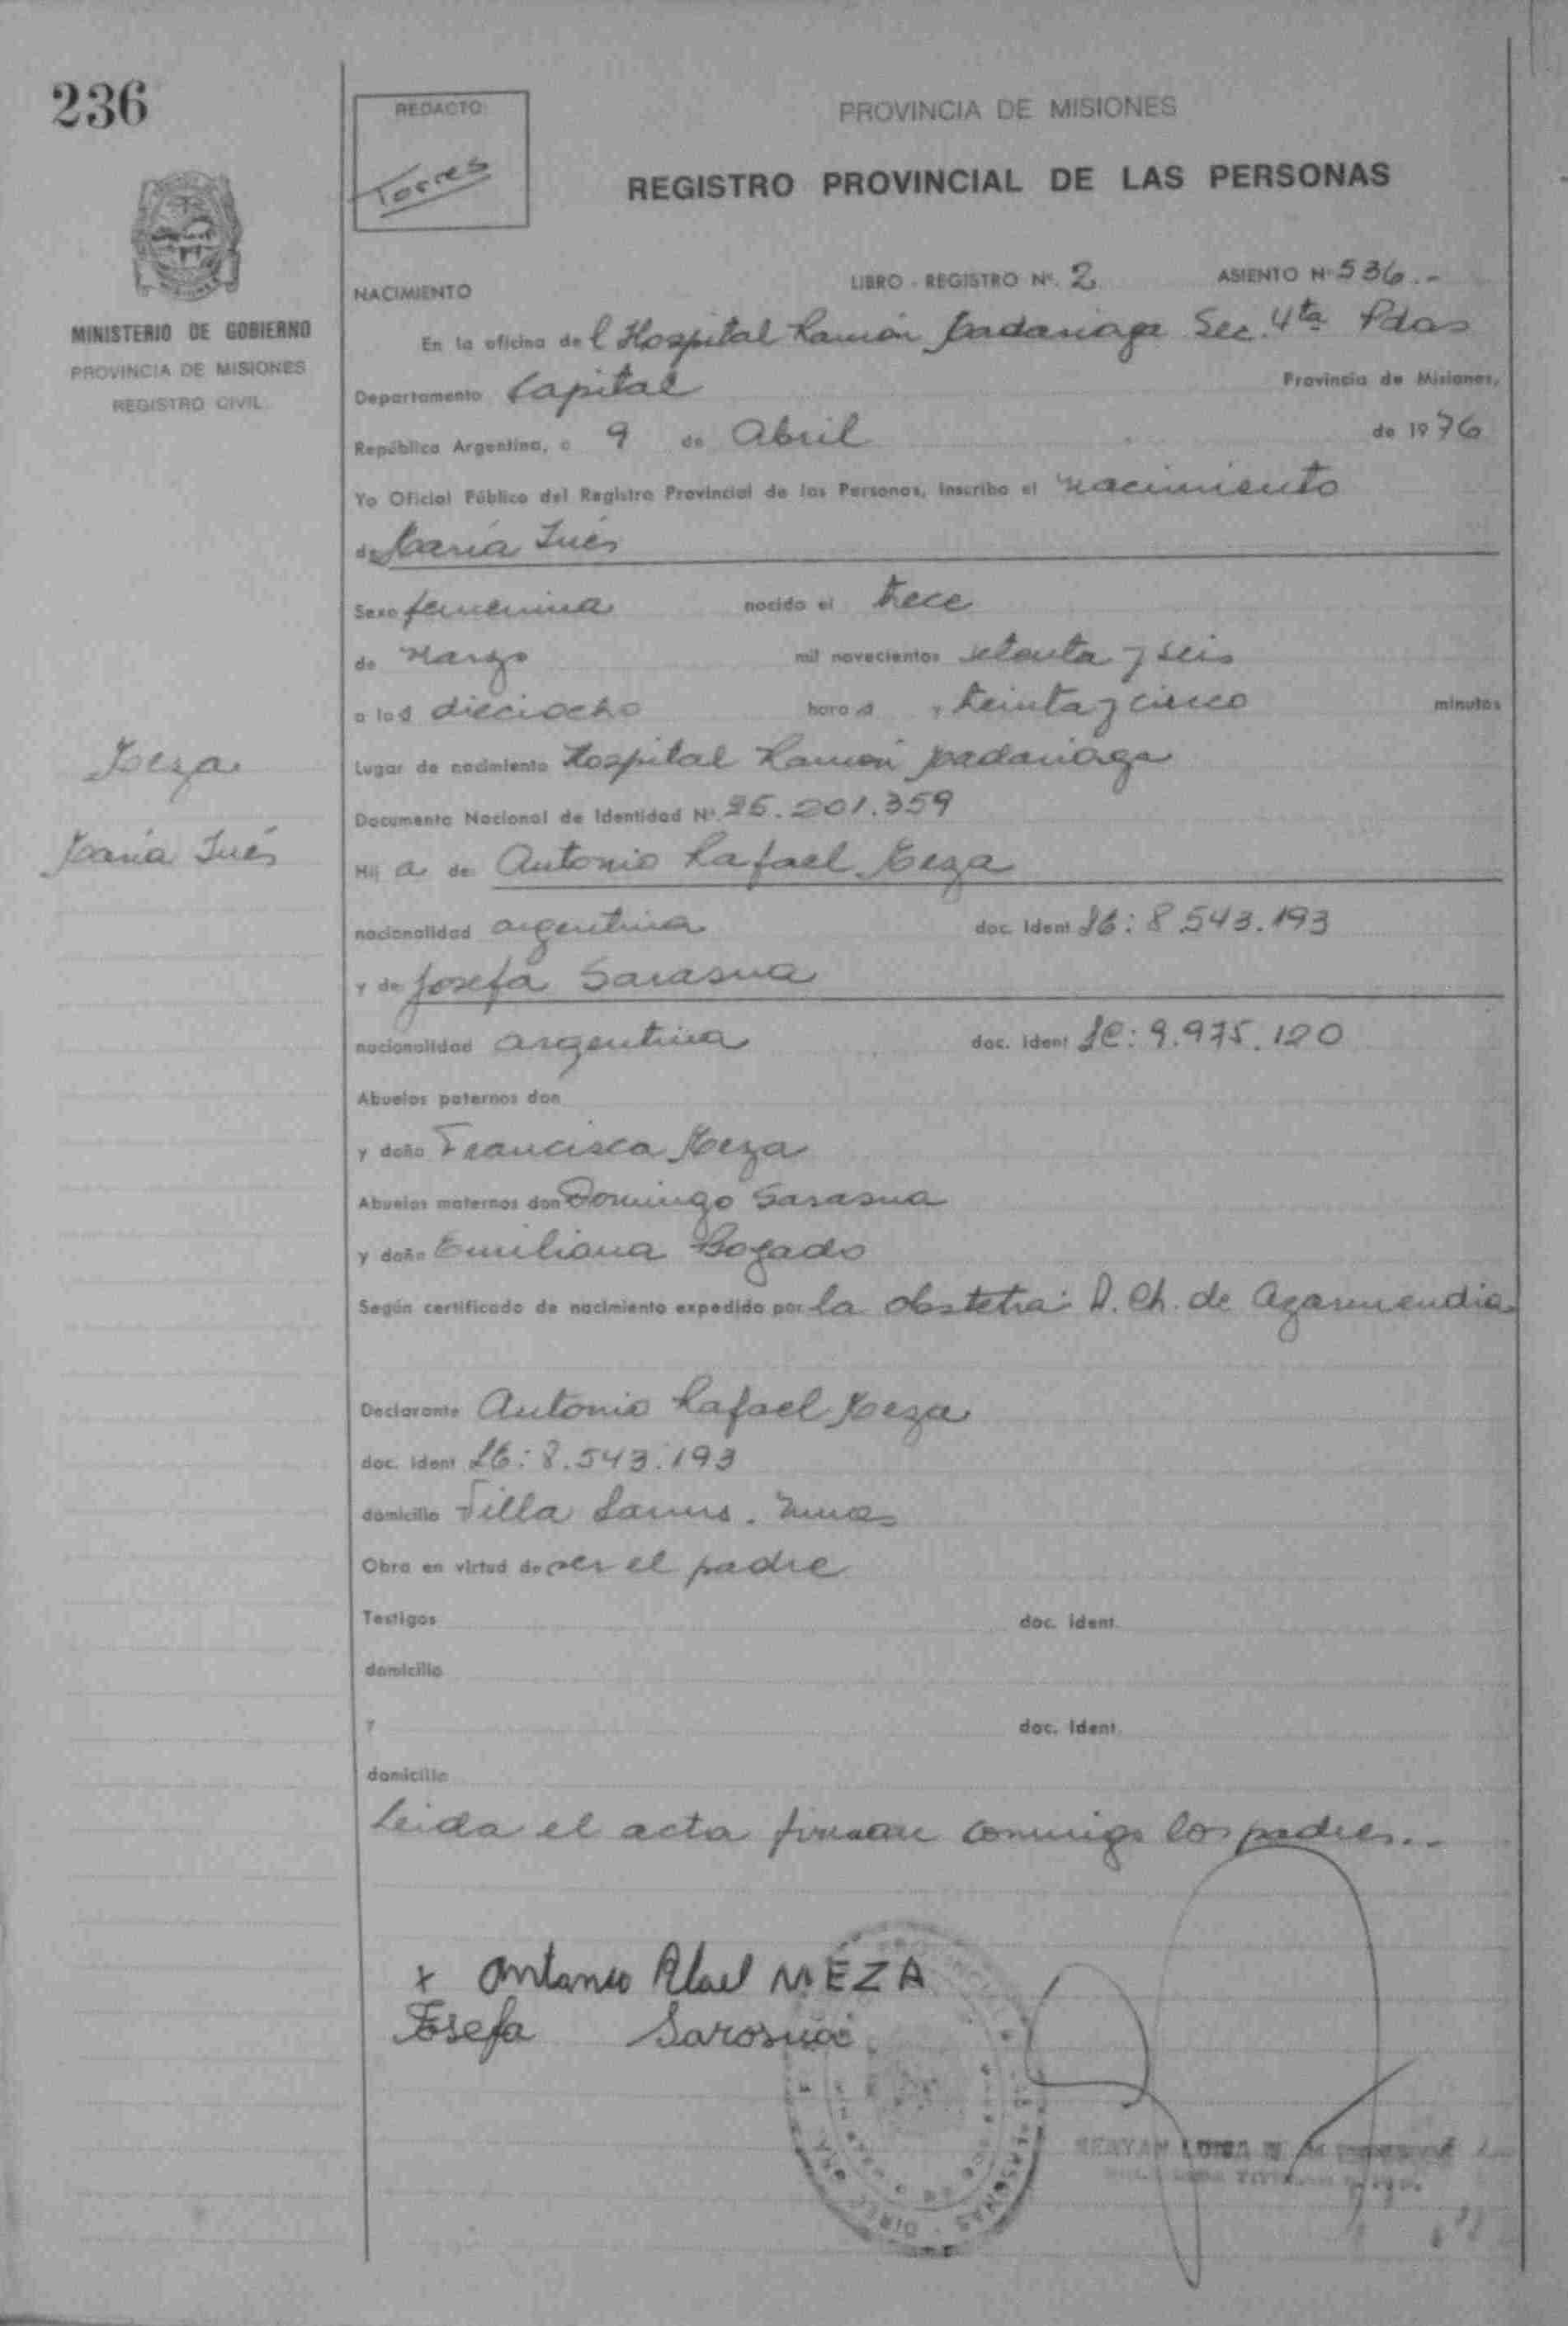 236
REDACTO:
Torres
PROVINCIA DE MISIONES
REGISTRO PROVINCIAL DE LAS PERSONAS
MINISTERIO DE GOBIERNO
PROVINCIA DE MISIONES
REGISTRO CIVIL
NACIMIENTO LIBRO - REGISTRO Nº. 2 ASIENTO Nº 536.-
En la oficina del Hospital Ramón Madariaga Sec. 4ta Pdas
Departamento Capital Provincia de Misiones,
República Argentina, a 9 de Abril de 1976
Yo Oficial Público del Registro Provincial de las Personas, inscribo el nacimiento
de María Inés
Sexo femenina nacido el trece
de Marzo mil novecientos setenta y seis
a las dieciocho horas y treinta y cinco minutos
Lugar de nacimiento Hospital Ramón Madariaga
Documento Nacional de Identidad Nº. 25.201.359
Meza
María Inés
Hij a de Antonio Rafael Meza
nacionalidad argentina doc. ident LE: 8.543.193
y de Josefa Sarasua
nacionalidad argentina doc. ident LC: 9.975.120
Abuelos paternos don
y doña Francisca Meza
Abuelos maternos don Domingo Sarasua
y doña Emiliana Bogado
Según certificado de nacimiento expedido por la obstetra: D. Ch. de Azarmendia
Declarante Antonio Rafael Meza
doc. ident LE: 8.543.193
domicilio Villa Lanus.
Obra en virtud de ser el padre
Testigos doc. ident.
domicilio
y doc. ident.
domicilio
Leida el acta firman conmigo los padres.-
x Antanio Rfael MEZA
Josefa Sarosua